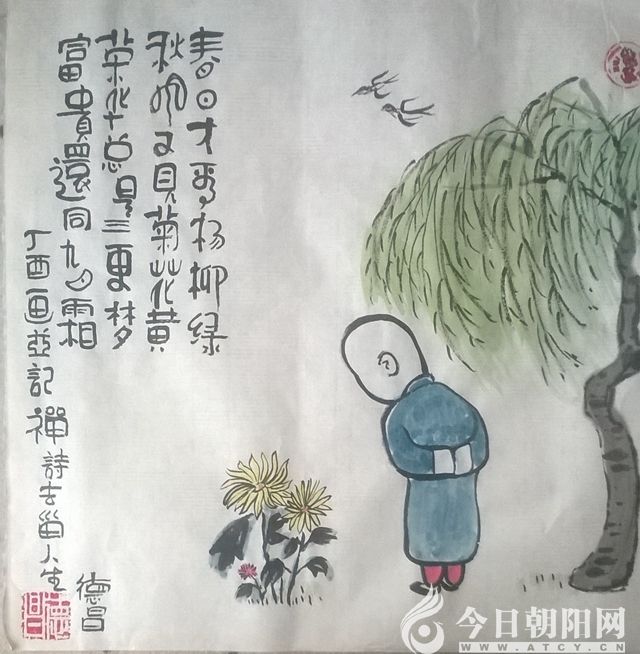 春日才看杨柳绿
秋风又见菊花黄
荣华总是三更梦
富貴還同九月霜
丁酉画並記 禪詩去留人生
德昌
今日朝阳网
WWW.ATCY.CN